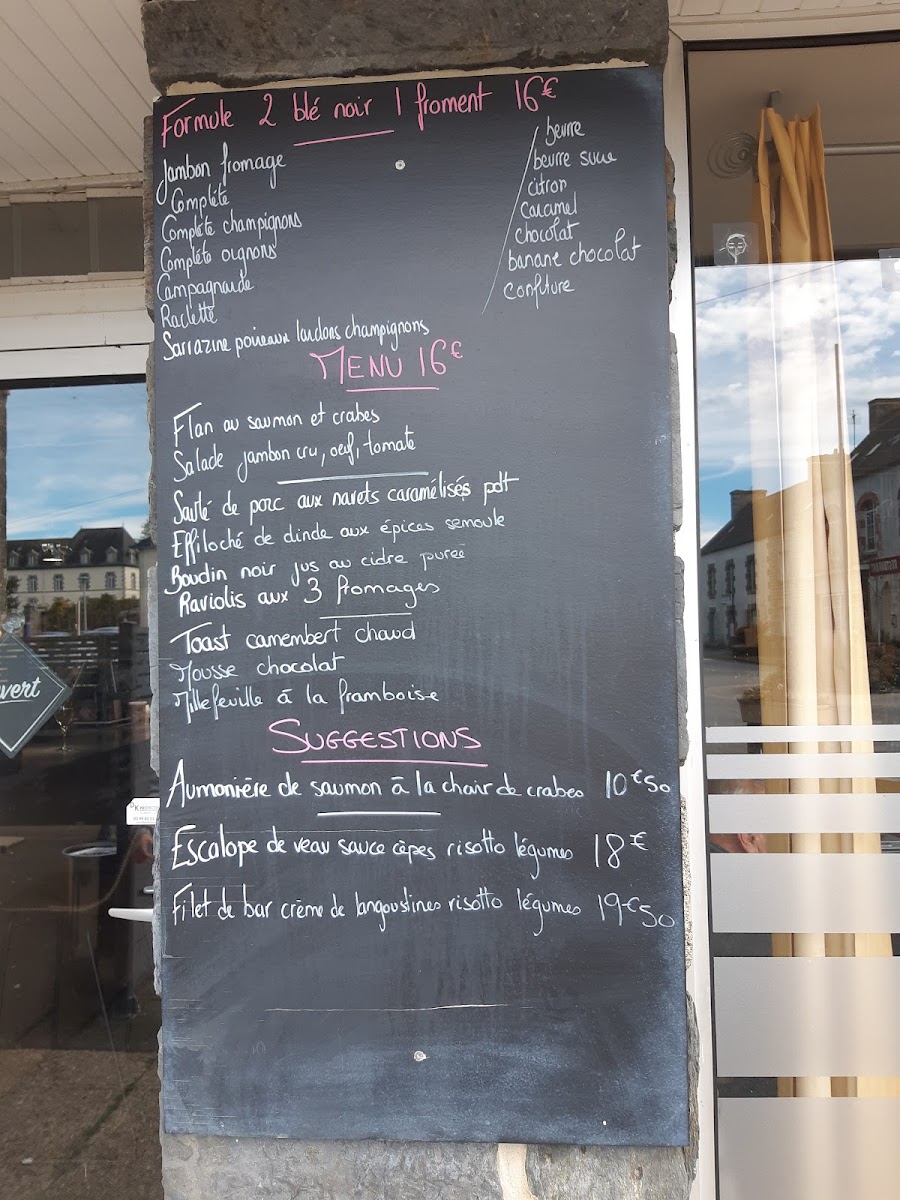 Formule 2 blé noir 1 froment 16€
Jambon fromage
Complète
Complète champignons
Complète oignons
Campagnarde
Raclette
Sarrazine poireaux lardons champignons
beurre
beurre sucre
citron
caramel
chocolat
banane chocolat
confiture
MENU 16€
Flan au saumon et crabes
Salade jambon cru, oeuf, tomate
Sauté de porc aux navets caramélisés pdt
Effiloché de dinde aux épices semoule
Boudin noir jus au cidre purée
Raviolis aux 3 fromages
Toast camembert chaud
Mousse chocolat
Millefeuille à la framboise
SUGGESTIONS
Aumonière de saumon à la chair de crabes 10€50
Escalope de veau sauce cèpes risotto légumes 18€
Filet de bar crème de langoustines risotto légumes 19€50
vert